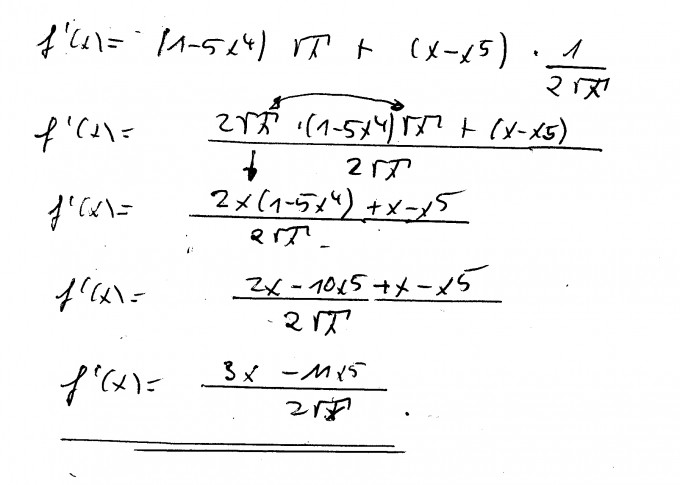 f'(x) = (1-5x⁴) √x + (x-x⁵) · 1/(2√x)
f'(x) = (2√x · (1-5x⁴)√x + (x-x⁵))/(2√x)
f'(x) = (2x(1-5x⁴) + x-x⁵)/(2√x)
f'(x) = (2x - 10x⁵ + x - x⁵)/(2√x)
f'(x) = (3x - 11x⁵)/(2√x).